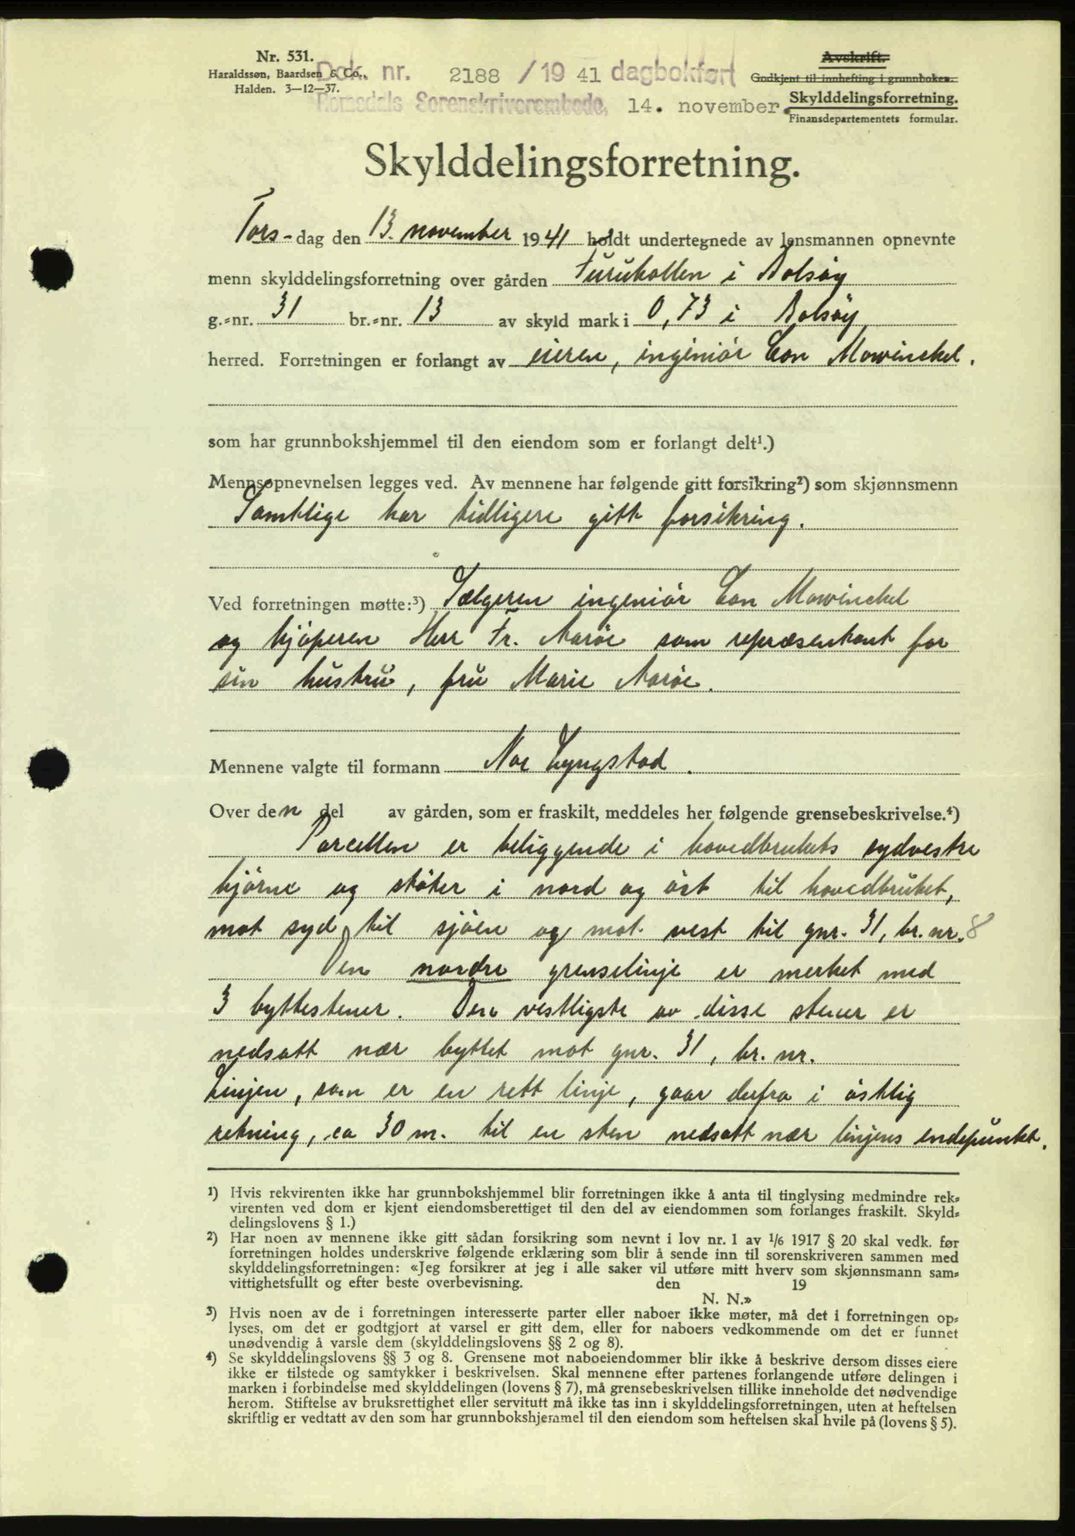 Nr. 531.
Haraldssøn, Baardsen & Co.,
Halden. 3—12—37.
Dok. nr. 2188 / 19 41 dagbokført
Romsdals Sorenskriverembede, 14. november.
Avskrift.
Godkjent til innhefting i grunnboken.
Skylddelingsforretning.
Finansdepartementets formular.
Skylddelingsforretning.
Tors-dag den 13. november 1941 holdt undertegnede av lensmannen opnevnte
menn skylddelingsforretning over gården Furukollen i Bolsøy
g.-nr. 31 br.-nr. 13 av skyld mark i 0,73 i Bolsöy
herred. Forretningen er forlangt av eieren, ingeniör Con Mowinckel.
som har grunnbokshjemmel til den eiendom som er forlangt delt¹.)
Mennsopnevnelsen legges ved. Av mennene har følgende gitt forsikring²) som skjønnsmenn
Samtlige har tidligere gitt forsikring.
Ved forretningen møtte:³) Sælgeren ingeniör Con Mowinckel
og kjöperen Herr Fr. Aaröe som repræsentant for
sin hustru, fru Marie Aaröe.
Mennene valgte til formann Lyngstad.
Over den del av gården, som er fraskilt, meddeles her følgende grensebeskrivelse.⁴)
Parcellen er beliggende i hovedbrukets sydvestre
hjörne og stöter i nord og öst til hovedbruket,
mot syd til sjöen og mot vest til gnr. 31, br. nr. 8
Den nordre grenselinje er merket med
3 byttestener. Den vestligste av disse stener er
nedsatt nær byttet mot gnr. 31, br. nr.
Linjen, som er en rett linje, gaar derfra i östlig
retning, ca 30 m. til en sten nedsatt nær linjens endepunkt.
¹) Hvis rekvirenten ikke har grunnbokshjemmel blir forretningen ikke å anta til tinglysing medmindre rek-
virenten ved dom er kjent eiendomsberettiget til den del av eiendommen som forlanges fraskilt. Skyld-
delingslovens § 1.)
²) Har noen av mennene ikke gitt sådan forsikring som nevnt i lov nr. 1 av 1/6 1917 § 20 skal vedk. før
forretningen holdes underskrive følgende erklæring som blir å sende inn til sorenskriveren sammen med
skylddelingsforretningen: «Jeg forsikrer at jeg i alle saker vil utføre mitt hverv som skjønnsmann sam-
vittighetsfullt og efter beste overbevisning. den 19
N. N.»
³) Hvis noen av de i forretningen interesserte parter eller naboer ikke møter, må det i forretningen op-
lyses, om det er godtgjort at varsel er gitt dem, eller for naboers vedkommende om det er funnet
unødvendig å varsle dem (skylddelingslovens §§ 2 og 8).
⁴) Se skylddelingslovens §§ 3 og 8. Grensene mot naboeiendommer blir ikke å beskrive dersom disses eiere
ikke er tilstede og samtykker i beskrivelsen. Skal mennene efter partenes forlangende utføre delingen i
marken i forbindelse med skylddelingen (lovens § 7), må grensebeskrivelsen tillike inneholde det nødvendige
herom. Stiftelse av bruksrettighet eller servitutt må ikke tas inn i skylddelingsforretningen, uten at heftelsen
skriftlig er vedtatt av den som har grunnbokshjemmel til den eiendom som heftelsen skal hvile på (lovens § 5).